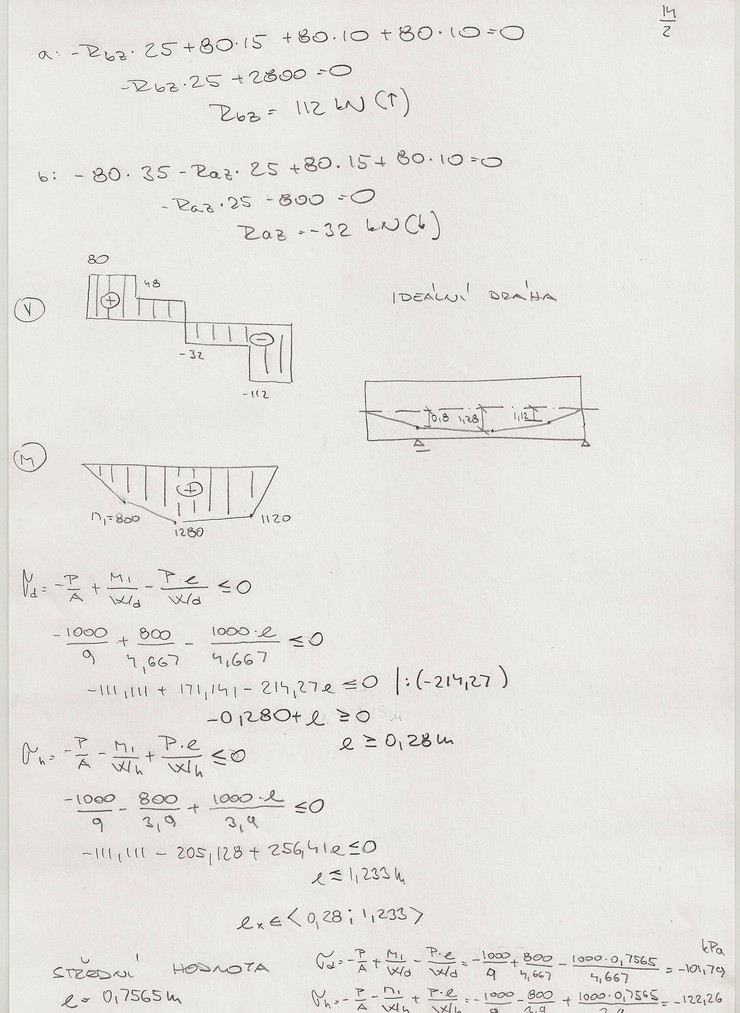 14/2
a: -Rbz · 25 + 80·15 + 80·10 + 80·10 = 0
-Rbz·25 + 2800 = 0
Rbz = 112 kN (↑)
b: - 80·35 - Raz·25 + 80·15 + 80·10 = 0
-Raz·25 - 800 = 0
Raz = -32 kN (↓)
80
48
V
+
-
-32
-112
IDEÁLNÍ DRÁHA
0,8 1,28 1,12
M
+
M₁=800
1280
1120
σd = -P/A + M₁/Wd - P·e/Wd ≤ 0
-1000/9 + 800/4,667 - 1000·e/4,667 ≤ 0
-111,111 + 171,141 - 214,27e ≤ 0 |:(-214,27)
-0,280 + e ≥ 0
e ≥ 0,28m
σh = -P/A - M₁/Wh + P·e/Wh ≤ 0
-1000/9 - 800/3,9 + 1000·e/3,9 ≤ 0
-111,111 - 205,128 + 256,41e ≤ 0
e ≤ 1,233m
ex ∈ <0,28 ; 1,233>
kPa
STŘEDNÍ HODNOTA
e = 0,7565m
σd = -P/A + M₁/Wd - P·e/Wd = -1000/9 + 800/4,667 - 1000·0,7565/4,667 = -101,79
σh = -P/A - M₁/Wh + P·e/Wh = -1000/9 - 800/3,9 + 1000·0,7565/3,9 = -122,26